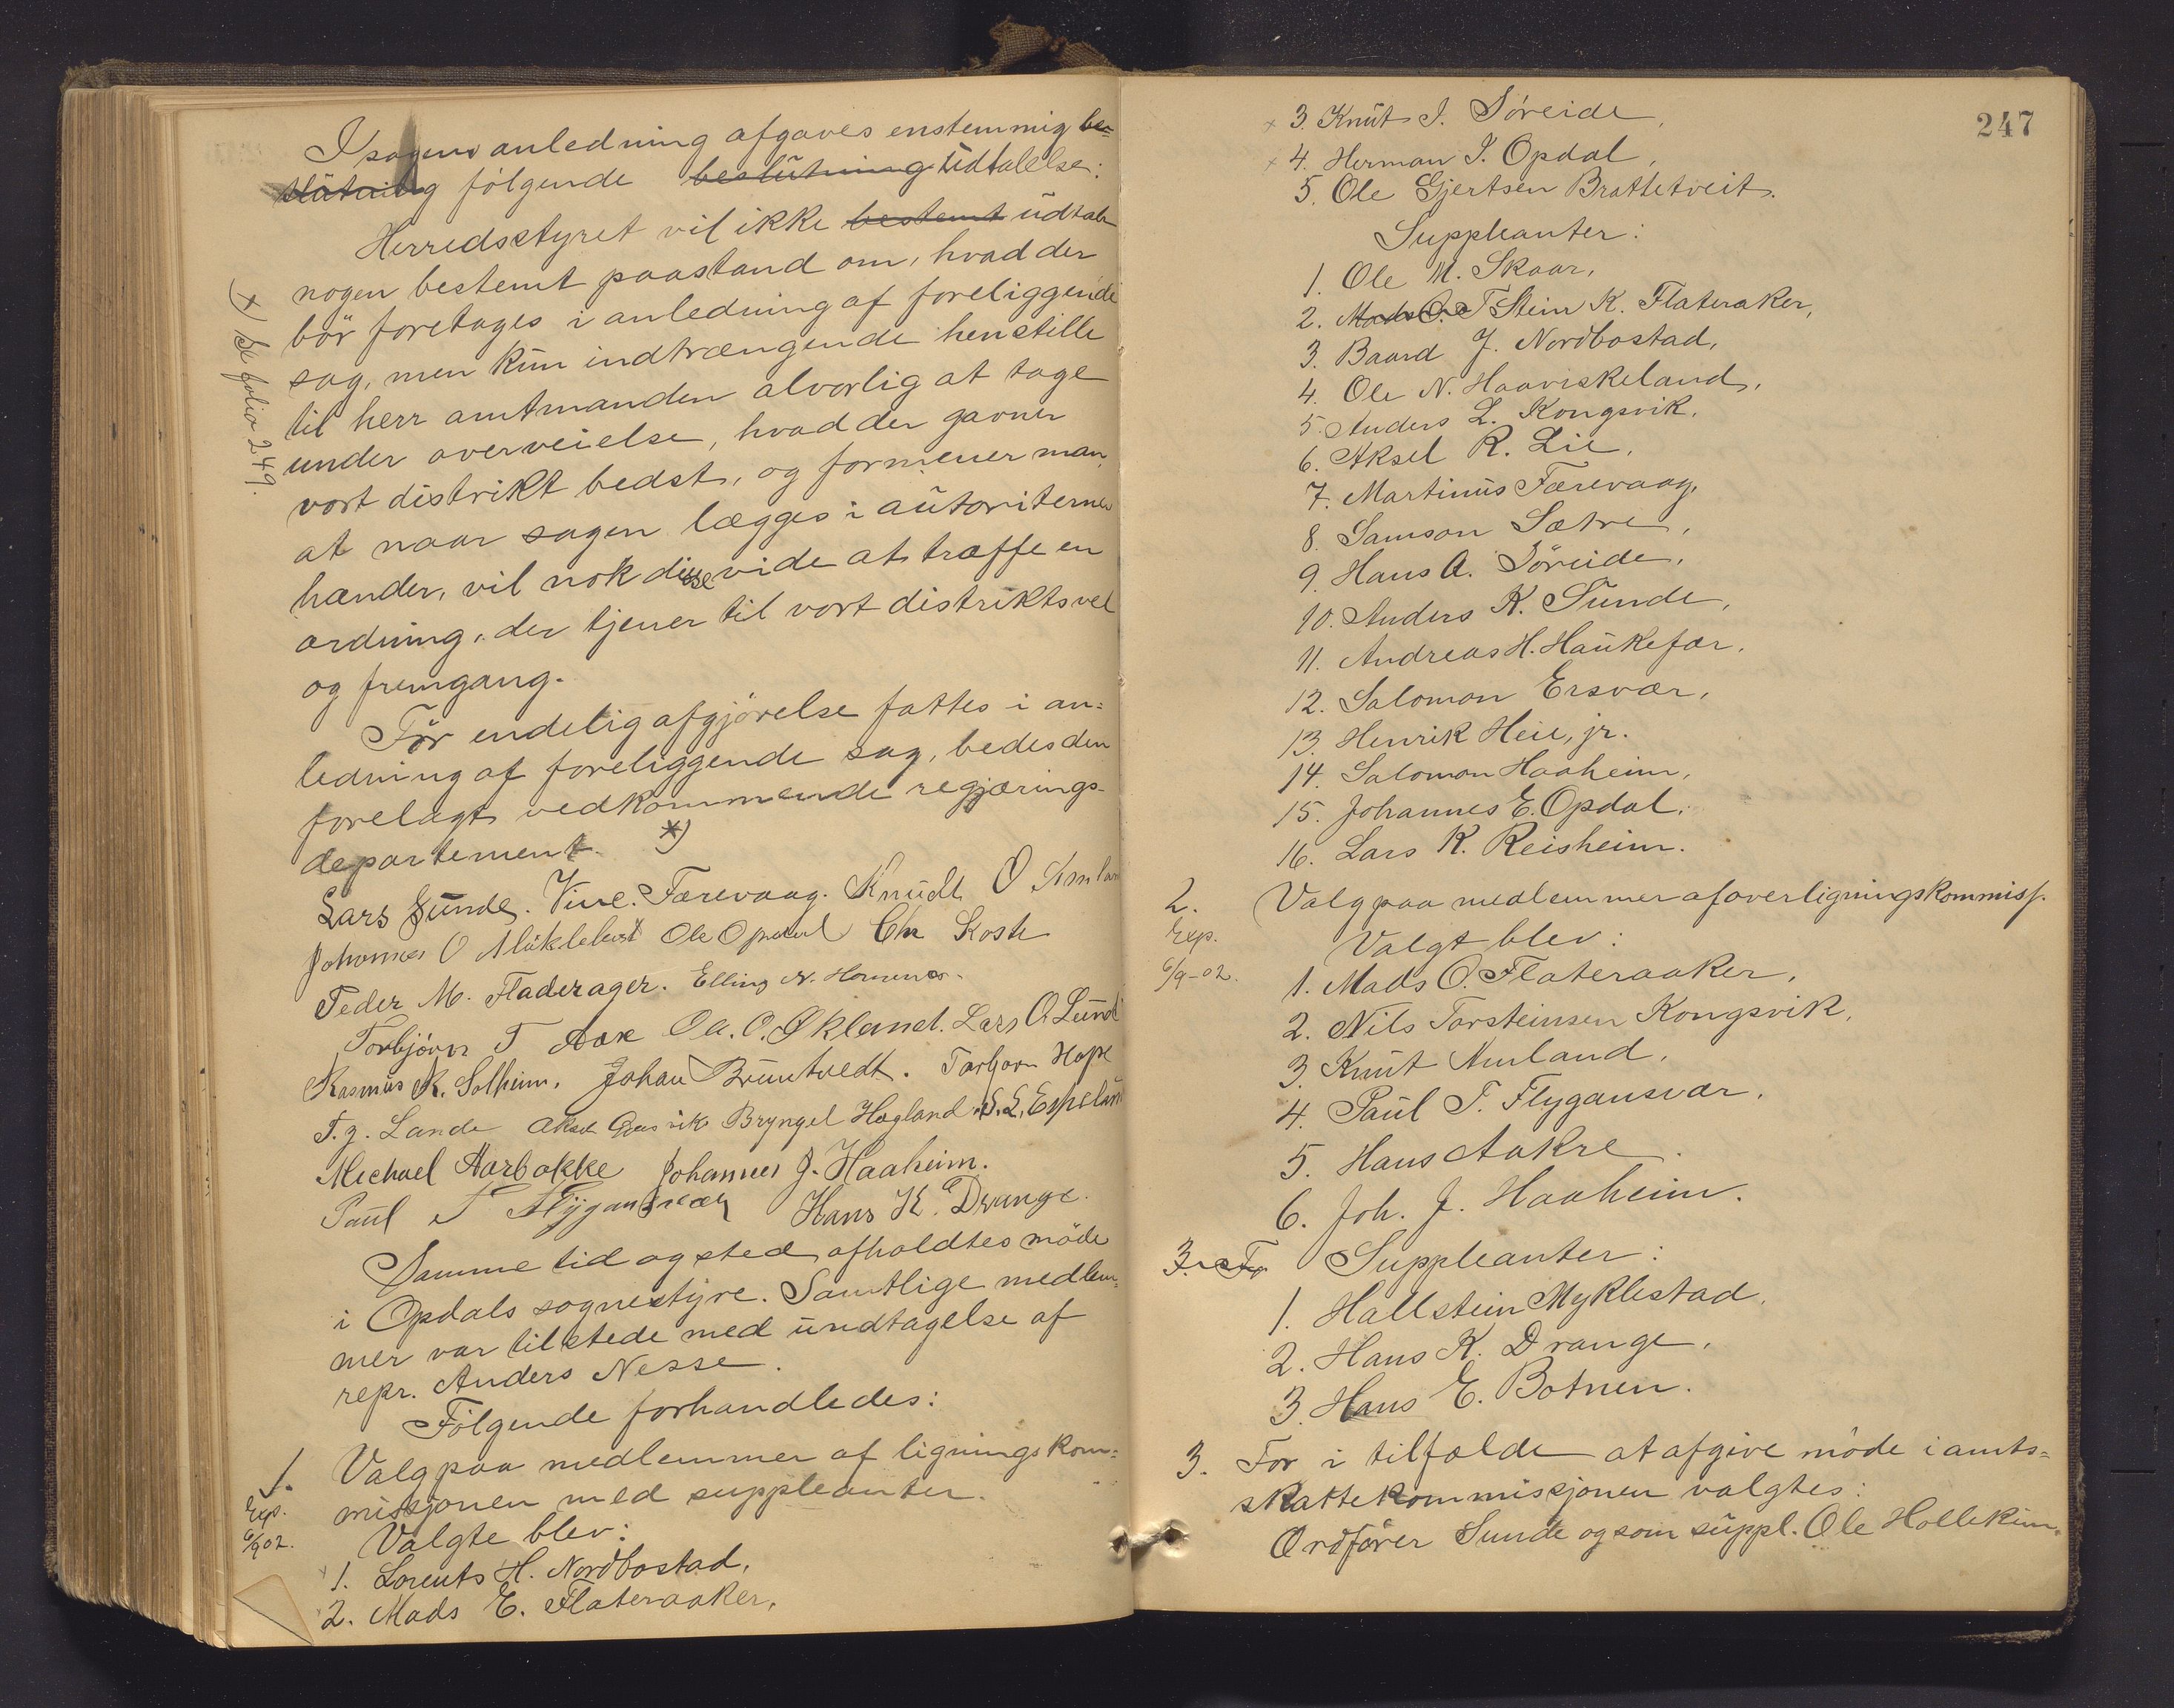 I sagens anledning afgaves enstemmig be-
slutning følgende beslutning udtalelse:
Herredsstyret vil ikke bestemt udtale
nogen bestemt paastand om, hvad der
bör foretages i anledning af foreliggende
sag, men kun indtrængende henstille
til herr amtmanden alvorlig at tage
under overveielse, hvad der gavner
vort distrikt bedst, og formener man,
at naar sagen lægges i autoriternes
hænder, vil nok disse vide at træffe en
ordning, der tjener til vort distrikts vel
og fremgang.
Før endelig afgjørelse fattes i an-
ledning af foreliggende sag, bedes den
forelagt vedkommende regjærings-
departement. *)
x) Se folio 249.
Lars Sunde. Vinc. Færevaag. Knudt O Amland
Johannes O Mÿklebust Ole Opdal Chr Koste
Peder M. Fladerager. Elling N. Hornenes.
Torbjörn T Aax Ole. O. Økland. Lars O. Lunde
Rasmus K. Solheim. Johan Bruntvedt. Torbjørn Hope
T. J. Lande Aksel Gaasvik Bryngel Hogland S. L. Espeland
Michael Aarbakke Johannes J. Haaheim.
Paul T Flygansvær Hans K. Drange.
Samme tid og sted afholdtes möde
i Opdals sognestyre. Samtlige medlem-
mer var tilstede med undtagelse af
repr. Anders Nesse.
Fölgende forhandledes:
1. Valg paa medlemmer af lignings kom-
missjonen med suppleanter.
Exp.
6/9 02.
Valgte blev:
x 1. Lorents H. Nordbostad,
x 2. Mads E. Flateraaker,
247
x 3. Knut I. Söreide,
x 4. Herman I. Opdal,
5. Ole Gjertsen Brattetveit.
Suppleanter:
1. Ole M. Skaar,
2. Mads O. T Stein K. Flateraker,
3. Baard J. Nordbostad,
4. Ole N. Haaviskeland,
5. Anders L. Kongsvik,
6. Aksel R. Lie,
7. Martinus Færevaag,
8. Samson Sætre,
9. Hans A. Söreide,
10. Anders K. Sunde,
11. Andreas H. Haukefær,
12. Salomon Ersvær,
13. Henrik Heie, jr.
14. Salomon Haaheim,
15. Johannes E. Opdal,
16. Lars K. Reisheim.
2. Valg paa medlemmer af overligningskommisj.
Exp.
6/9-02.
Valgt blev:
1. Mads O. Flateraaker,
2. Nils Torsteinsen Kongsvik,
3. Knut Amland,
4. Paul T. Flygansvær,
5. Hans Aakre.
6. Joh. J. Haaheim.
3. Fo Suppleanter:
1. Hallstein Myklestad,
2. Hans K. Drange,
3. Hans E. Botnen.
3. For i tilfælde at afgive möde i amts-
skattekommissjonen valgtes:
Ordförer Sunde og som suppl. Ole Hollekim.